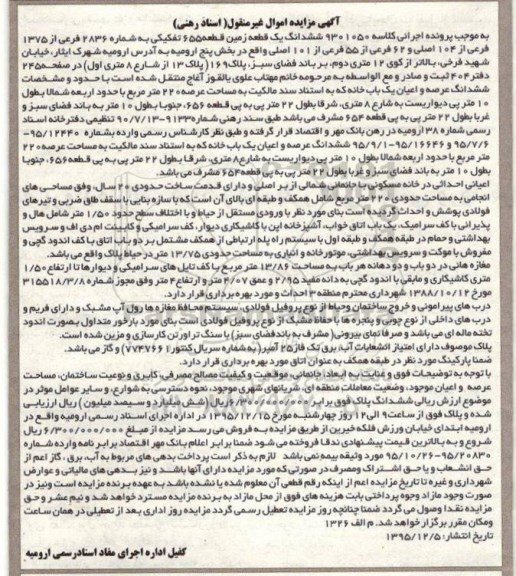 آگهی مزایده اموال غیرمنقول( اسناد رهنی)
به موجب پرونده اجرائی کلاسه ۹۳۰۱۰۵۰ ششدانگ یک قطعه زمین قطعه۶۵۵ تفکیکی به شماره ۲۸۳۶ فرعی از ۱۳۷۵
فرعی از ۱۰۴ اصلی و ۶۲ فرعی از ۵۵ فرعی از ۱۰۱ اصلی واقع در بخش پنج ارومیه به آدرس ارومیه شهرک ایثار، خیابان
شهید فرخی، بالاتر از کوی ۱۲ متری دوم، بر باند فضای سبز، پلاک۱۶۹( پلاک ۱۳ از شارع ۸ متری اول) در صفحه۲۴۵
دفتر ۴۰۲ ثبت و صادر و مع الواسطه به مرحومه خانم مهتاب علوی یالقوز آغاج منتقل شده است با حدود و مشخصات
ششدانگ عرصه و اعیان یک باب خانه که به استناد سند مالکیت به مساحت عرصه ۲۲۰ متر مربع با حدود اربعه شمالا بطول
۱۰ متر پی دیواریست به شارع ۸ متری، شرقا بطول ۲۲ متر پی به پی قطعه ۶۵۶، جنوبا بطول ۱۰ متر به باند فضای سبز و
غربا بطول ۲۲ متر پی به پی قطعه ۶۵۴ مشرف می باشد طبق سند رهنی شماره۹۱۱۳۳-۹۰/۷/۱۳ تنظیمی دفترخانه اسناد
رسمی شماره ۳۸ ارومیه در رهن بانک مهر و اقتصاد قرار گرفته و طبق نظر کارشناس رسمی وارده بشماره ۹۵/۱۲۴۴۰-
۹۵/۷/۶ و ۹۵/۱۶۶۴۶-۹۵/۹/۱ ششدانگ عرصه و اعیان یک باب خانه که به استناد سند مالکیت به مساحت عرصه۲۲۰
متر مربع با حدود اربعه شمالا بطول ۱۰ متر پی دیواریست به شارع۸ متری، شرقا بطول ۲۲ متر پی به پی قطعه۶۵۶، جنوبا
بطول ۱۰ متر به باند فضای سبز و غربا بطول ۲۲ متر پی به پی قطعه۶۵۴ مشرف می باشد.
اعیانی احداثی در خانه مسکونی جانمائی شمالی از بر اصلی و دارای قدمت ساخت حدودی ۲۰ سال، وفق مساحی های
انجامی به مساحت حدودی ۲۲۰ متر مربع شامل همکف و طبقه ای بالای آن است که با سازه بنایی با سقف طاق ضربی و تیرهای
فولادی پوشش و احداث گردیده است بنای مورد نظر با ورودی مستقل از حیاط و با اختلاف سطح حدود ۱/۵۰ متر شامل هال و
پذیرایی با کف سرامیک، یک باب اتاق خواب، آشپزخانه اپن با کاشیکاری دیوار، کف سرامیکی و کابینت ام دی اف و سرویس
بهداشتی و حمام در طبقه همکف و طبقه اول با سیستم راه پله ارتباطی از همکف مشتمل بر دو باب اتاق با کف اندود گچی و
مفروش با موکت و سرویس بهداشتی، موتورخانه و انباری به مساحت حدودی ۱۳/۷۵ متر در حیاط پلاک واقع می باشد.
مغازه هائی در دو باب و دو دهانه هر باب به مساحت ۱۳/۸۶ متر مربع با کف تایل های سرامیکی و دیوارها تا ارتفاع ۱/۵۰
متری کاشیکاری و مابقی با اندود گچی به دانه مفید ۲/۹۵ و عمق ۴/۰۷ متر و ارتفاع ۴ متر وفق مجوز شماره ۳۱۵۵۱۸/۳/۸
مورخ ۱۳۸۸/۱۰/۱۲ شهرداری محترم منطقه ۳ احداث و مورد بهره برداری قرار دارد.
درب های پیرامونی و خروج ساختمان و حیاط از نوع پروفیل فولادی، سیستم محافظ مغازه ها رول آپ مشبک و دارای فریم و
درب های داخلی از نوع چوبی و پنجره ها با حفاظ مشبک از نوع پروفیل فولادی است بنای مورد بازخور متداول بصورت اندود
تخته ماله ای می باشد و صرفا نمای بیرونی( مشرف به باند فضای سبز) با سنگ تراورتن کارسازی و مزین شده است.
پلاک موصوف دارای امتیاز انشعابات آب، برق تک فاز ۲۵ آمپر( به شماره سریال کنتور ۷۷۴۷۶۶۱) و گاز می باشد.
ضمنا پارکینگ مورد نظر در طبقه همکف به عنوان اتاق مورد بهره برداری قرار دارد.
با توجه به توضیحات فوق و عنایت به ابعاد، جانمائی، موقعیت و کیفیت مصالح مصرفی، کاربری و نوعیت ساختمان، مساحت
عرصه و اعیان موجود، وضعیت معاملات منطقه ای، شریانهای شهری موجود، نحوه دسترسی به شوارع، و سایر عوامل موثر در
موضوع ارزش ریالی ششدانگ پلاک فوق برابر ۶/۳۰۰/۰۰۰/۰۰۰ ریال(شش میلیارد و سیصد میلیون ) ریال ارزیابی
شده و پلاک فوق از ساعت ۹ الی ۱۲ روز چهارشنبه مورخ ۱۳۹۵/۱۲/۲۵ در اداره اجرای اسناد رسمی ارومیه واقع در
ارومیه ابتدای خیابان ورزش فلکه خیرین از طریق مزایده به فروش می رسد مزایده از مبلغ ۶/۳۰۰/۰۰۰/۰۰۰ ریال
شروع و به بالاترین قیمت پیشنهادی نقدا فروخته می شود ضمنا برابر اعلام بانک مهر اقتصاد برابر نامه وارده شماره
۹۵/۲۰۸۳۰-۹۵/۱۰/۲۶ مورد وثیقه بیمه نمی باشد لازم به ذکر است پرداخت بدهی های مربوط به آب، برق، گاز اعم از
حق انشعاب و یا حق اشتراک و مصرف در صورتی که مورد مزایده دارای آنها باشد و نیز بدهی های مالیاتی و عوارض
شهرداری و غیره تا تاریخ مزایده اعم از اینکه رقم قطعی آن معلوم شده یا نشده باشد به عهده برنده مزایده است و نیز در
صورت وجود مازاد وجوه پرداختی بابت هزینه های فوق از محل مازاد به برنده مزایده مسترد خواهد شد و نیم عشر و حق
مزایده نقدا وصول می گردد ضمنا چنانچه روز مزایده تعطیل رسمی گردد مزایده روز اداری بعد از تعطیلی در همان ساعت
و مکان مقرر برگزار خواهد شد. م الف ۱۳۲۶
تاریخ انتشار: ۱۳۹۵/۱۲/۵
کفیل اداره اجرای مفاد اسنادرسمی ارومیه